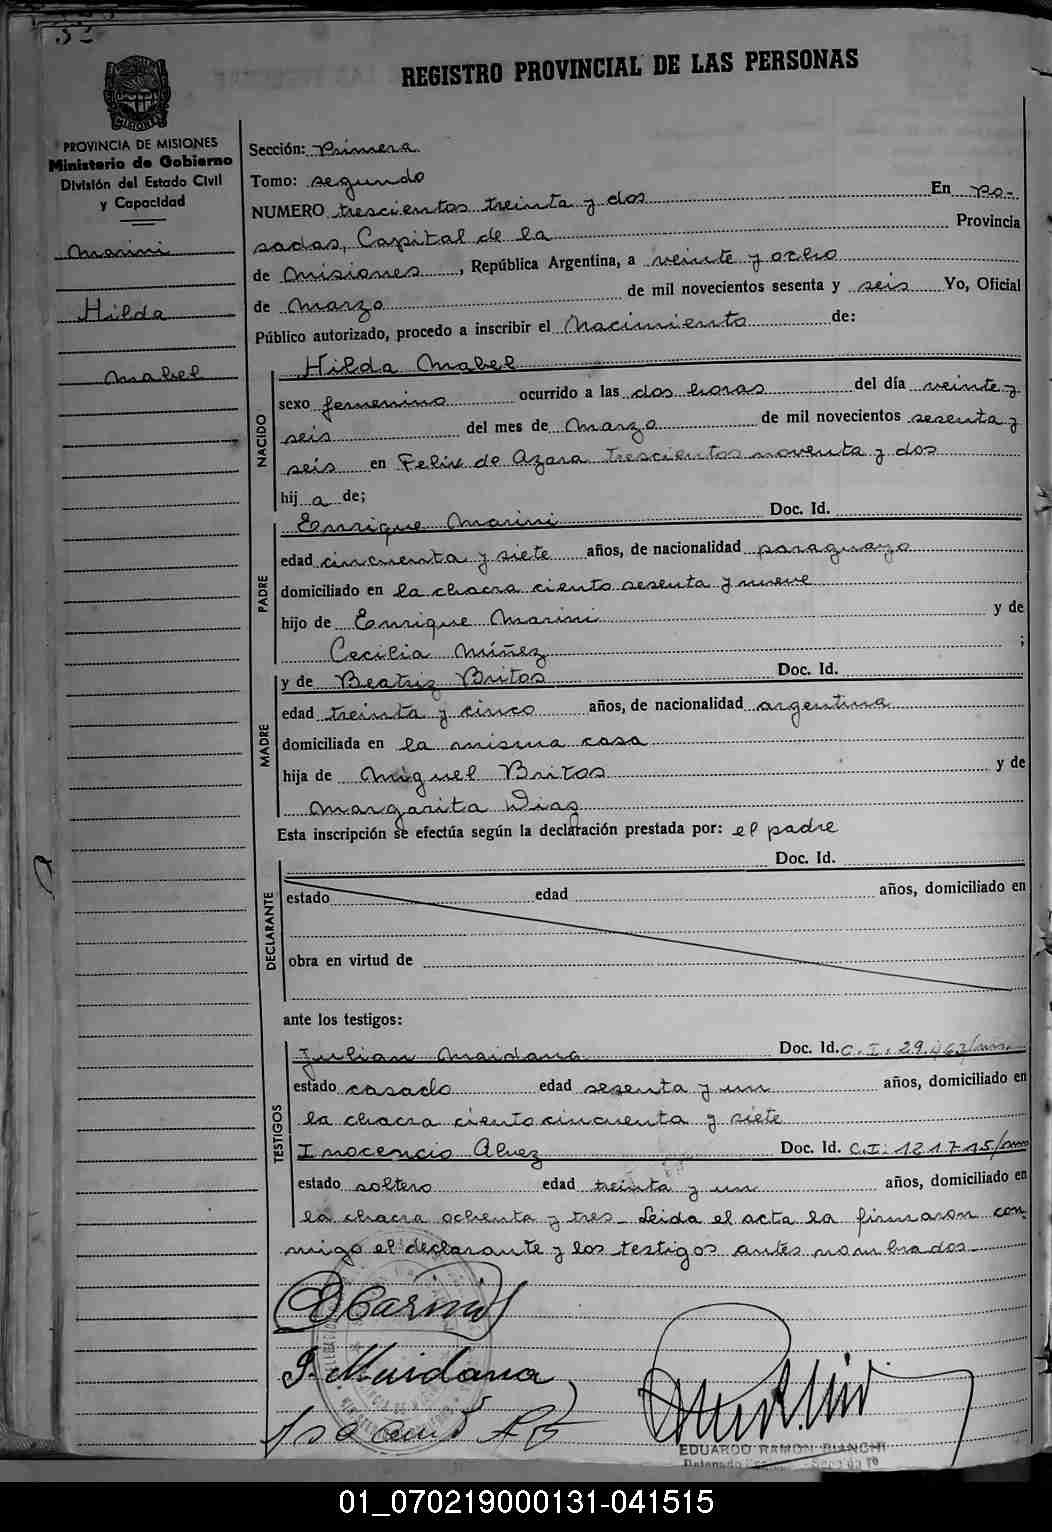 REGISTRO PROVINCIAL DE LAS PERSONAS
PROVINCIA DE MISIONES
Ministerio de Gobierno
División del Estado Civil
y Capacidad
Marini
Hilda
Mabel
Sección: Primera
Tomo: segundo
NUMERO trescientos treinta y dos En Po-
sadas, Capital de la Provincia
de Misiones, República Argentina, a veinte y ocho
de Marzo de mil novecientos sesenta y seis Yo, Oficial
Público autorizado, procedo a inscribir el Nacimiento de:
NACIDO
Hilda Mabel
sexo femenino ocurrido a las dos horas del día veinte y
seis del mes de Marzo de mil novecientos sesenta y
seis en Felix de Azara trescientos noventa y dos
hij a de;
PADRE
Enrique Marini Doc. Id.
edad cincuenta y siete años, de nacionalidad paraguayo
domiciliado en la chacra ciento sesenta y nueve
hijo de Enrique Marini y de
Cecilia Núñez ;
MADRE
y de Beatriz Britos Doc. Id.
edad treinta y cinco años, de nacionalidad argentina
domiciliada en la misma casa
hija de Miguel Britos y de
Margarita Diaz
Esta inscripción se efectúa según la declaración prestada por: el padre
DECLARANTE
Doc. Id.
estado edad años, domiciliado en
obra en virtud de
ante los testigos:
TESTIGOS
Julian Maidana Doc. Id. C.I. 29.463/mm
estado casado edad sesenta y un años, domiciliado en
la chacra ciento cincuenta y siete
Inocencio Alvez Doc. Id. C.I. 121715/mm
estado soltero edad treinta y un años, domiciliado en
la chacra ochenta y tres. Leida el acta la firmaron con-
migo el declarante y los testigos antes nombrados
J. Maidana
EDUARDO RAMON BIANCHI
01_070219000131-041515